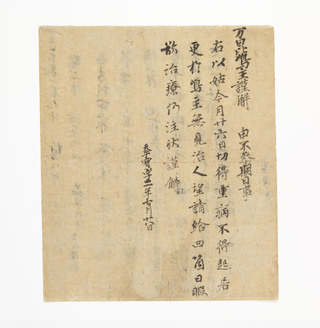 万昆嶋主謹解　由不参期日事
右以姑今月廿六日切得重病不得起居
更於嶋主無見治人望請給四箇日暇
欲治療仍注状謹解